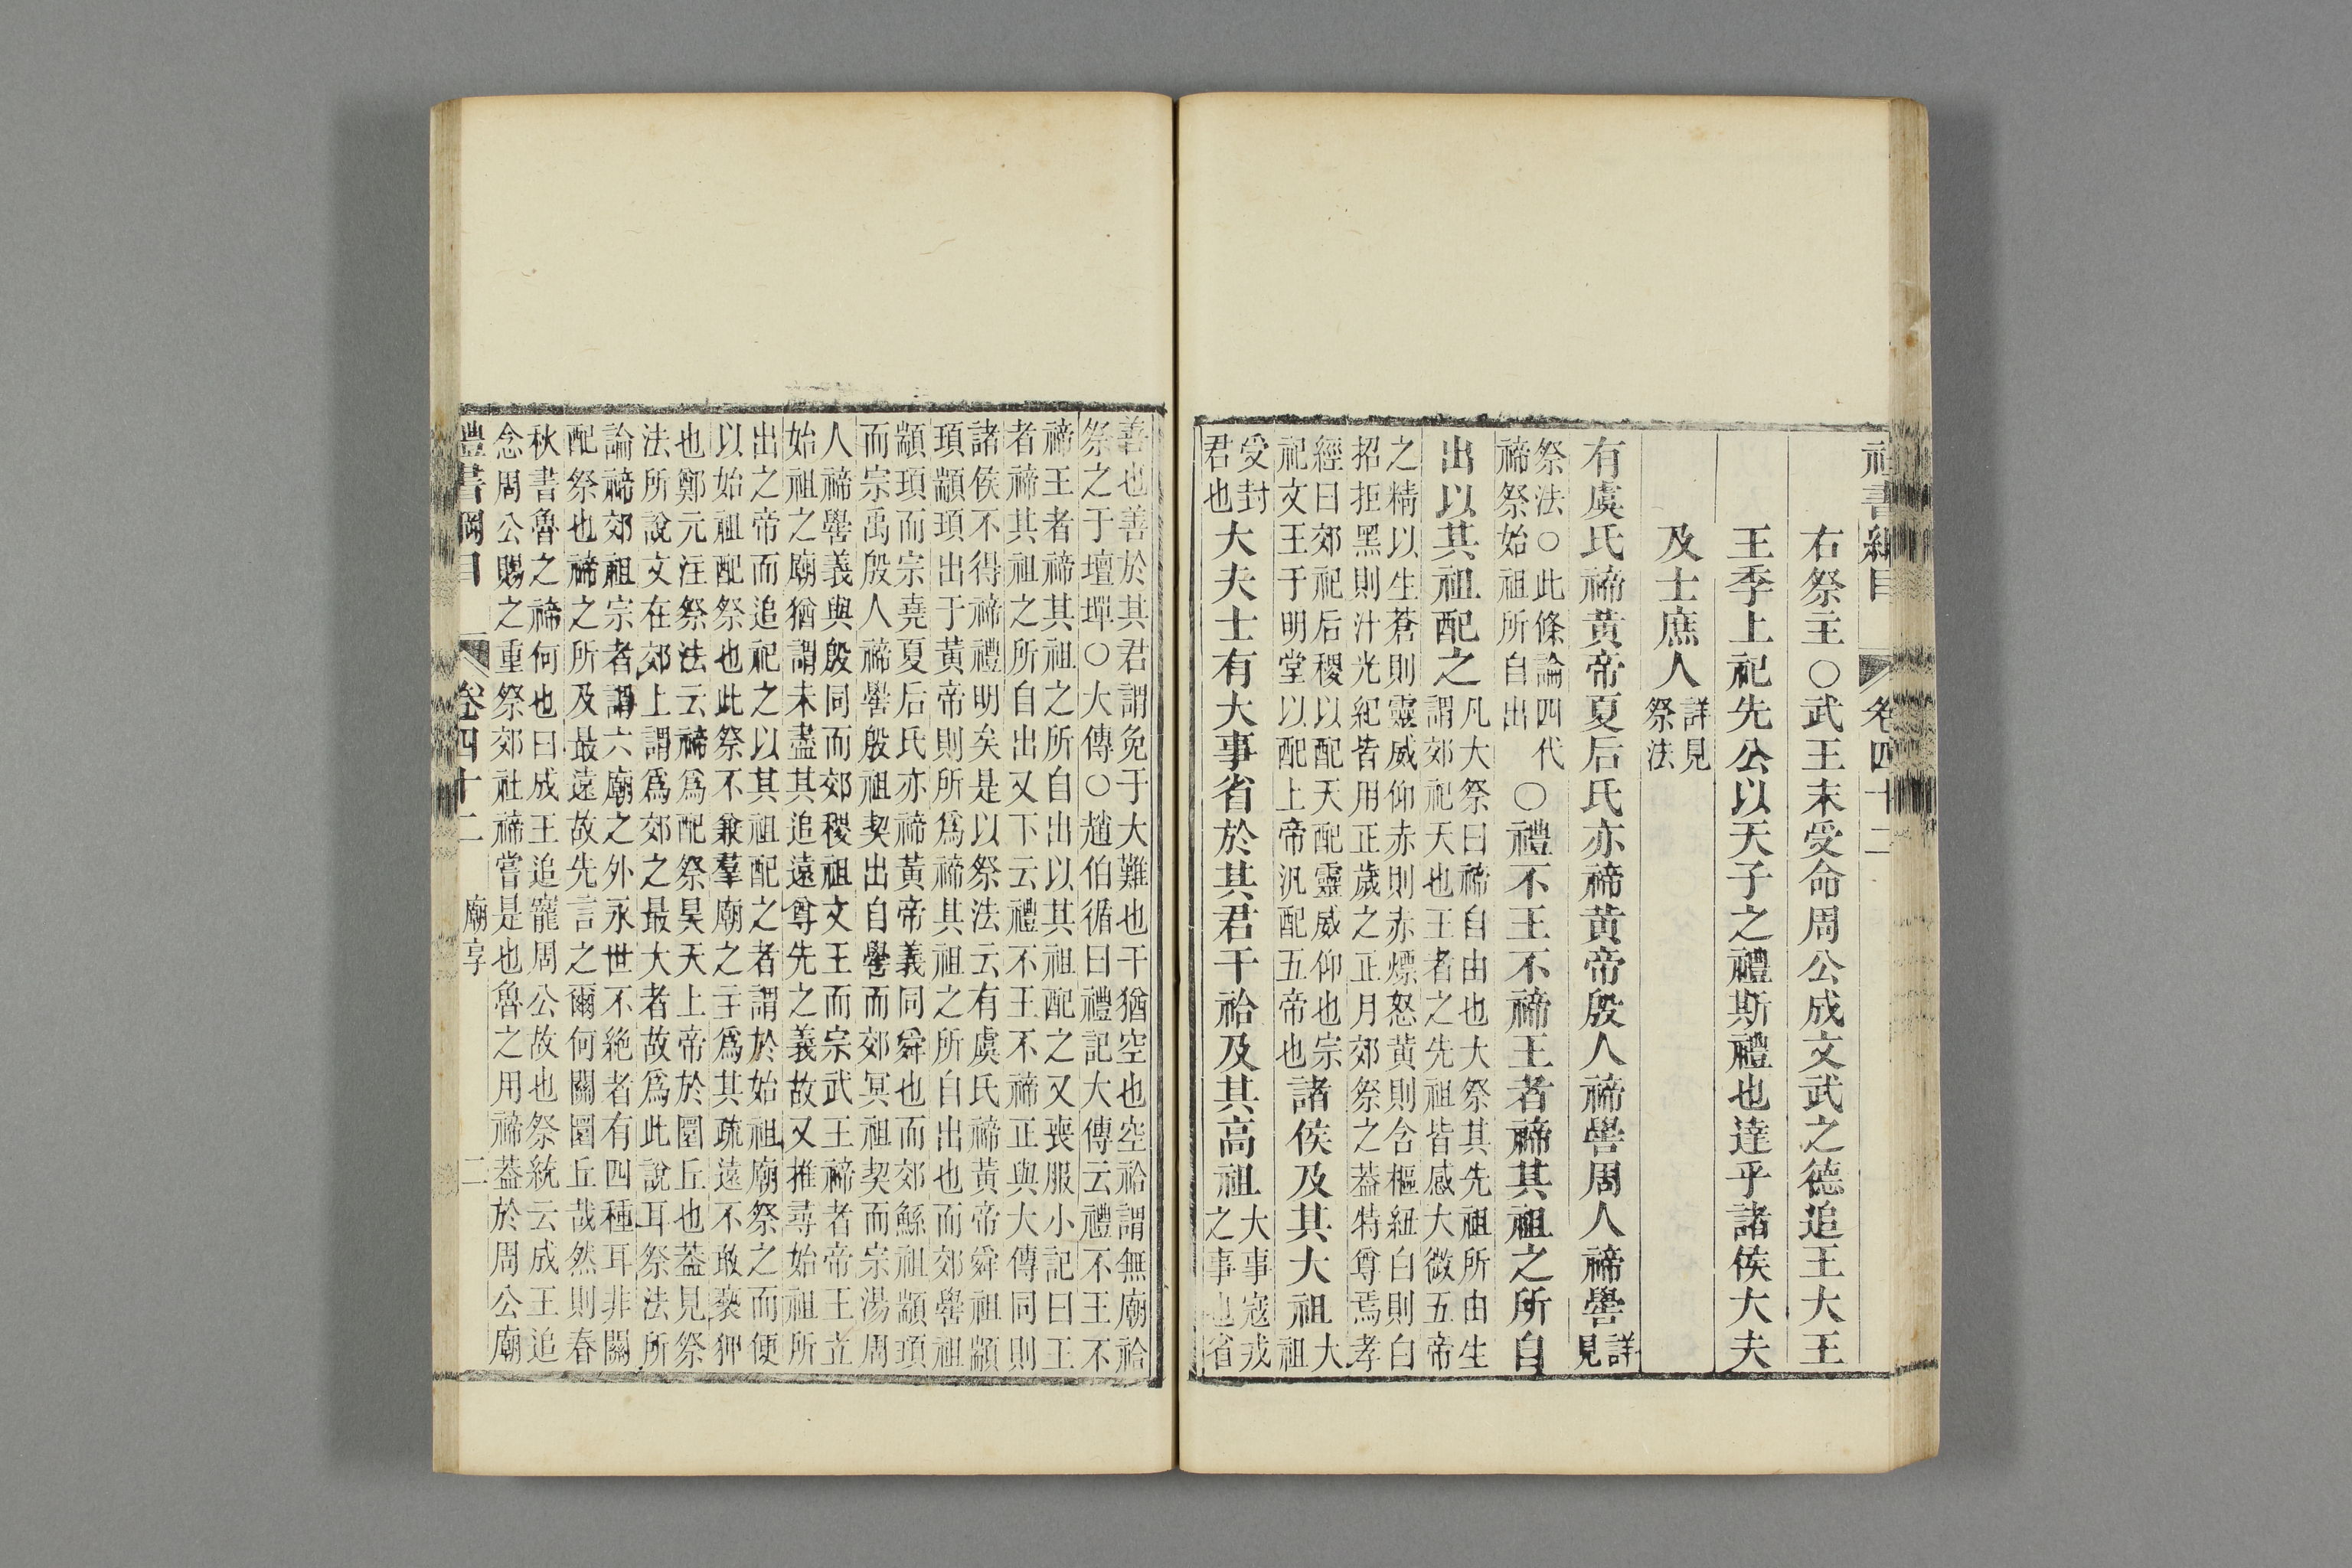 禮書綱目 卷四十二
右祭主〇武王末受命周公成文武之德追王大王
王季上祀先公以天子之禮斯禮也達乎諸侯大夫
及士庶人詳見
祭法
有虞氏禘黃帝夏后氏亦禘黃帝殷人禘嚳周人禘嚳詳
見
祭法〇此條論四代
禘祭始祖所自出
〇禮不王不禘王者禘其祖之所自
出以其祖配之
凡大祭曰禘自由也大祭其先祖所由生
謂郊祀天也王者之先祖皆感大微五帝
之精以生蒼則靈威仰赤則赤熛怒黃則含樞紐白則白
招拒黑則汁光紀皆用正歲之正月郊祭之蓋特尊焉孝
經曰郊祀后稷以配天配靈威仰也宗
祀文王于明堂以配上帝汎配五帝也
諸侯及其大祖大
祖
受封
君也
大夫士有大事省於其君干祫及其高祖
大事寇戎
之事也省
善也善於其君謂免于大難也干猶空也空祫謂無廟祫
祭之于壇墠〇大傳〇趙伯循曰禮記大傳云禮不王不
禘王者禘其祖之所自出以其祖配之又喪服小記曰王
者禘其祖之所自出又下云禮不王不禘正與大傳同則
諸侯不得禘禮明矣是以祭法云有虞氏禘黃帝舜祖顓
頊顓頊出于黃帝則所爲禘其祖之所自出也而郊嚳祖
顓頊而宗堯夏后氏亦禘黃帝義同舜也而郊鯀祖顓頊
而宗禹殷人禘嚳殷祖契出自嚳而郊冥祖契而宗湯周
人禘嚳義與殷同而郊稷祖文王而宗武王禘者帝王立
始祖之廟猶謂未盡其追遠尊先之義故又推尋始祖所
出之帝而追祀之以其祖配之者謂於始祖廟祭之而便
以始祖配祭也此祭不兼羣廟之主爲其疏遠不敢褻狎
也鄭元注祭法云禘爲配祭昊天上帝於圜丘也蓋見祭
法所說文在郊上謂爲郊之最大者故爲此說耳祭法所
論禘郊祖宗者謂六廟之外永世不絕者有四種耳非關
配祭也禘之所及最遠故先言之爾何關圜丘哉然則春
秋書魯之禘何也曰成王追寵周公故也祭統云成王追
念周公賜之重祭郊社禘嘗是也魯之用禘蓋於周公廟
禮書綱目 卷四十二 廟享 二